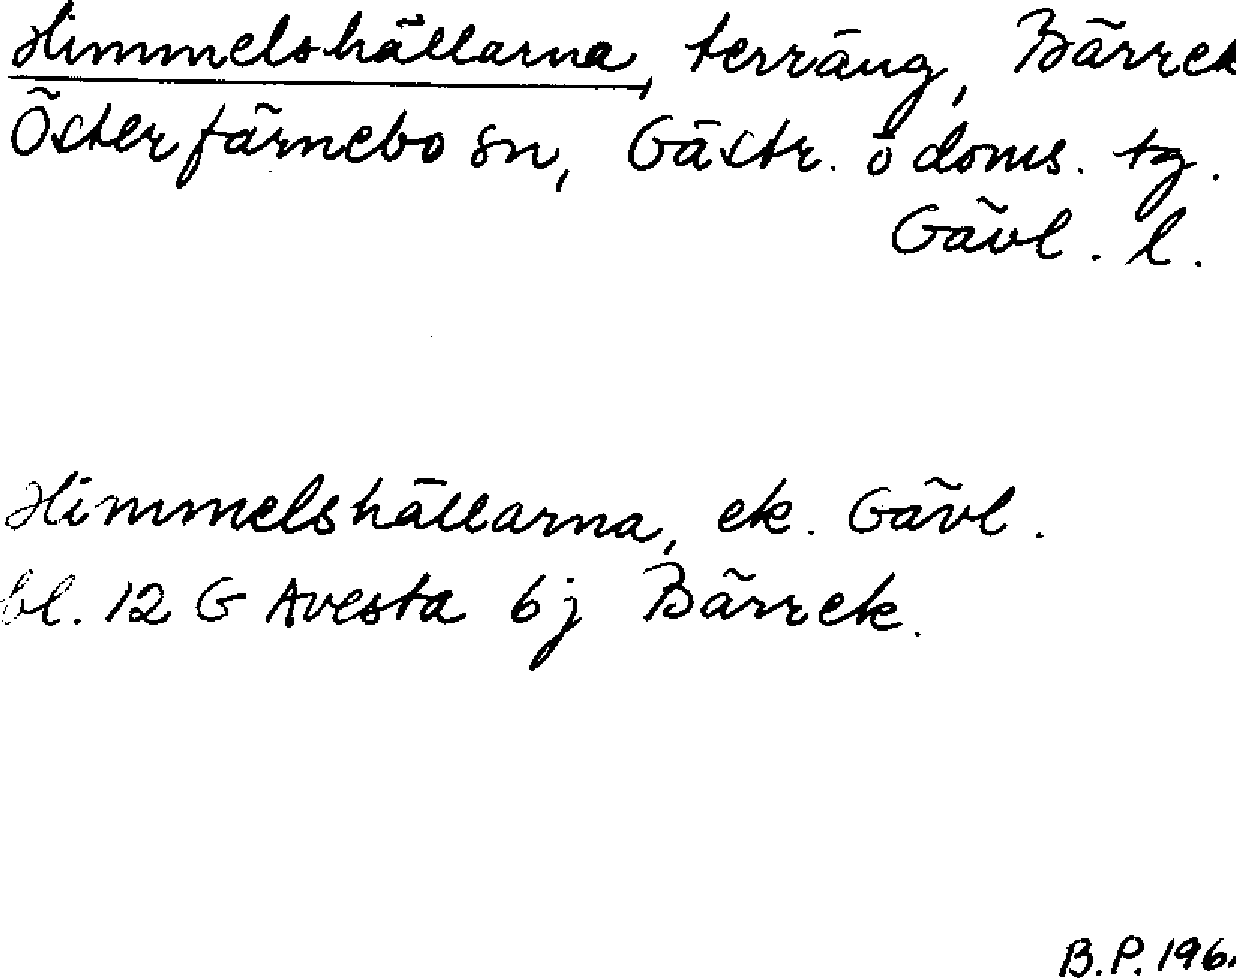 Himmelshällarna, terräng, Bärrek
Österfärnebo sn, Gästr. ö doms. tg.
Gävl. l.
Himmelshällarna, ek. Gävl.
bl. 12 G Avesta 6j Bärrek.
B.P. 196